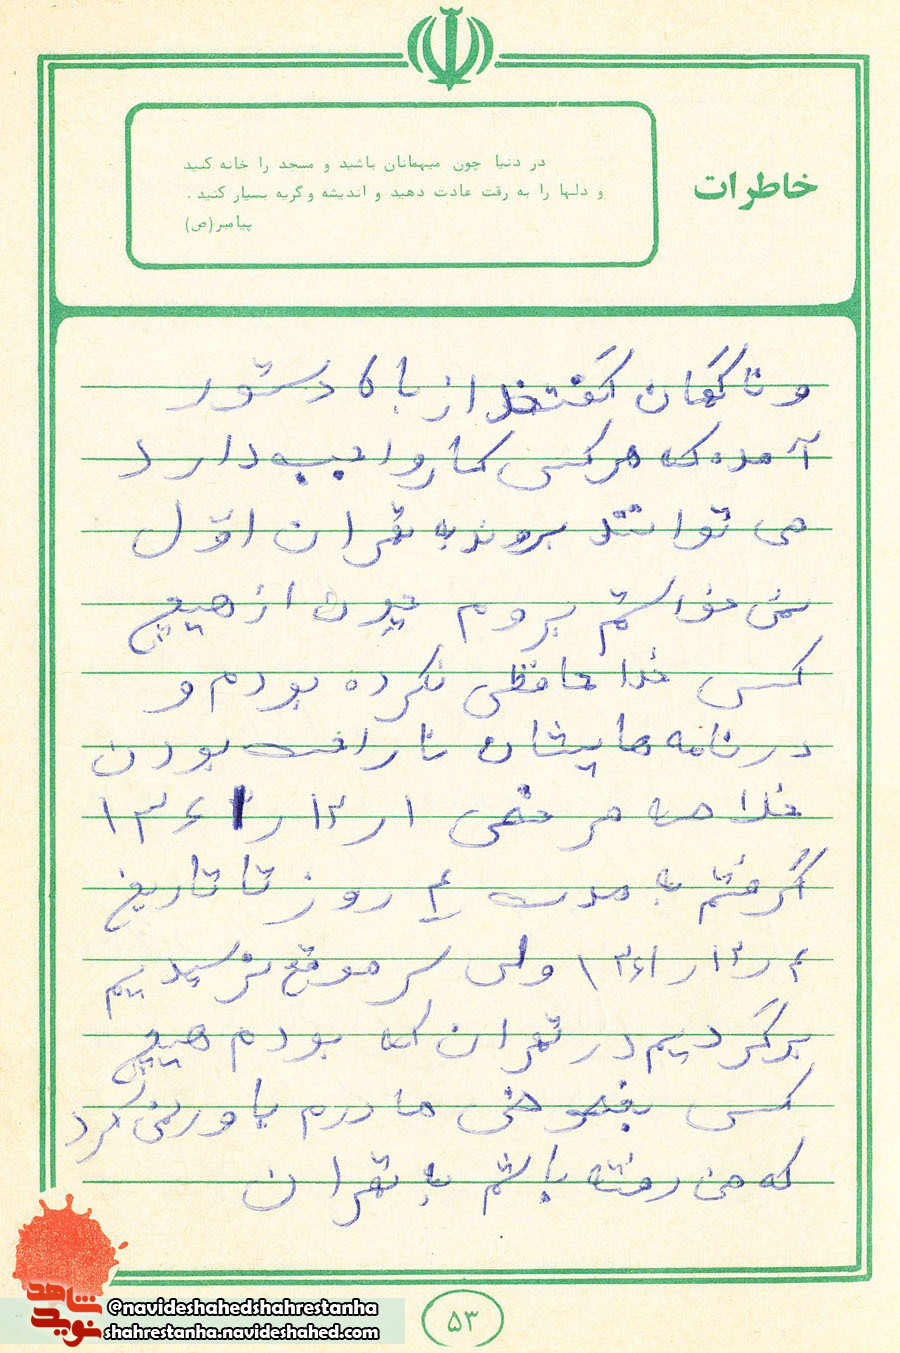 خاطرات
در دنیا چون میهمانان باشید و مسجد را خانه کنید
و دلها را به رقت عادت دهید و اندیشه و گریه بسیار کنید .
پیامبر (ص)
و ناگهان گفتند از بالا دستور
آمده که هر کسی کار واجب دارد
می توانند بروند به تهران اوّل
نمی خواستم بروم چون از هیچ
کسی خدا حافظی نکرده بودم و
در نامه هایشان ناراحت بودن
خلاصه مرخصی ۱ ر ۱۲ ر ۱۳۶۱
گرفتم به مدت ۴ روز تا تاریخ
۴ ر ۱۲ ر ۱۳۶۱ ولی سر موقع نرسیدیم
برگردیم در تهران که بودم هیچ
کسی بخصوص مادرم باور نمی کرد
که من رفته باشم به تهران
۵۳
شاهد
نوید
@navideshahedshahrestanha
shahrestanha.navideshahed.com